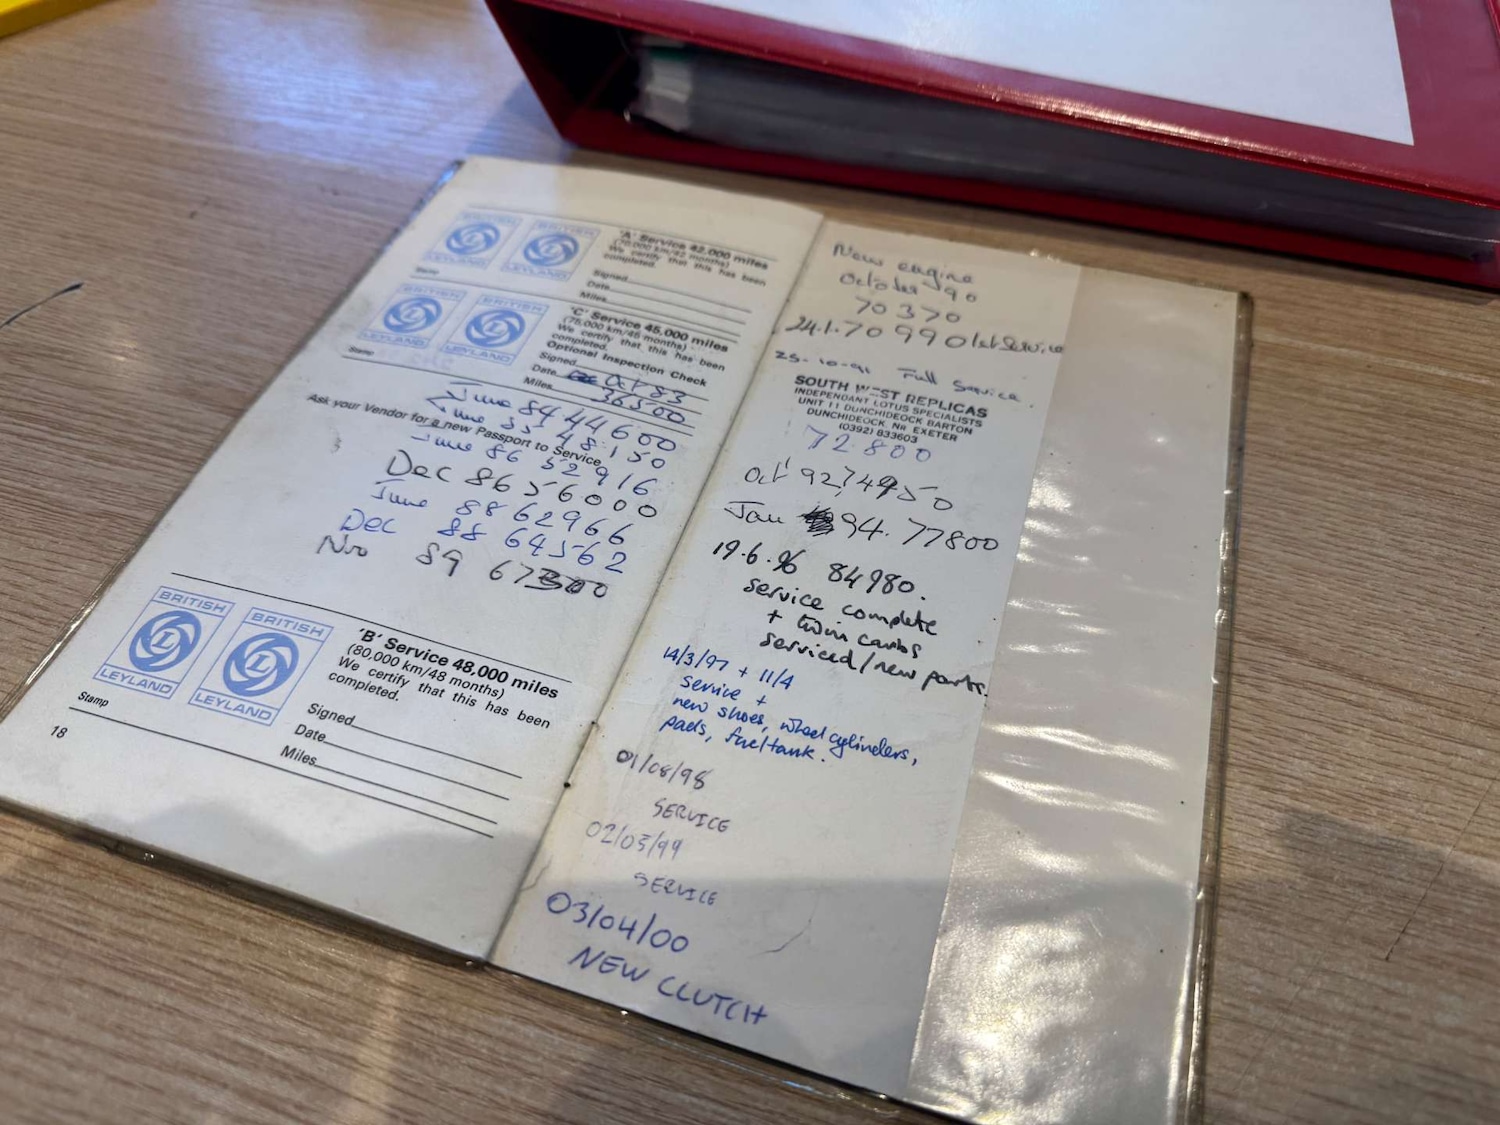 BRITISH
LEYLAND
BRITISH
LEYLAND
'A' Service 42,000 miles
(70,000 km/42 months)
We certify that this has been
completed.
Signed
Date
Miles
Stamp
BRITISH
LEYLAND
BRITISH
LEYLAND
'C' Service 45,000 miles
(75,000 km/45 months)
We certify that this has been
completed.
Optional Inspection Check
Signed
Date Oct 83
Miles 36500
Stamp
June 84 44600
Ask your Vendor for a new Passport to Service
June 85 48,150
June 86 52916
Dec 86 56000
June 88 62966
Dec 88 64562
Nov 89 67300
BRITISH
L
LEYLAND
BRITISH
L
LEYLAND
'B' Service 48,000 miles
(80,000 km/48 months)
We certify that this has been
completed.
Signed
Date
Miles
Stamp
18
New engine
October 90
70370
24.1. 70990 1st Service
25-10-91 Full Service.
SOUTH WEST REPLICAS
INDEPENDANT LOTUS SPECIALISTS
UNIT 11 DUNCHIDEOCK BARTON
DUNCHIDEOCK, Nr EXETER
(0392) 833603
72.800
Oct 92, 74950
Jan 94. 77800
19.6.96 84980.
service complete
+ twin carbs
serviced/new parts.
14/3/97 + 11/4
service +
new shoes, wheel cylinders,
pads, fuel tank.
01/08/98
SERVICE
02/03/99
SERVICE
03/04/00
NEW CLUTCH